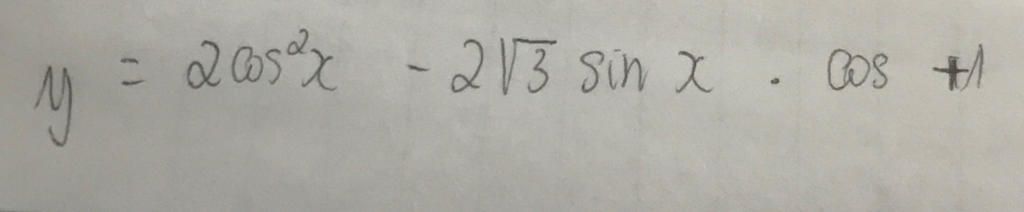 y = 2cos²x - 2√3 sin x · cos +1